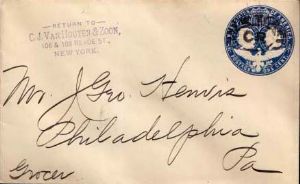 RETURN TO
C. J. VAN HOUTEN & ZOON,
106 & 108 READE ST.,
NEW YORK.
Mr. J Geo. Henvis
Philadelphia
Pa
Grocer